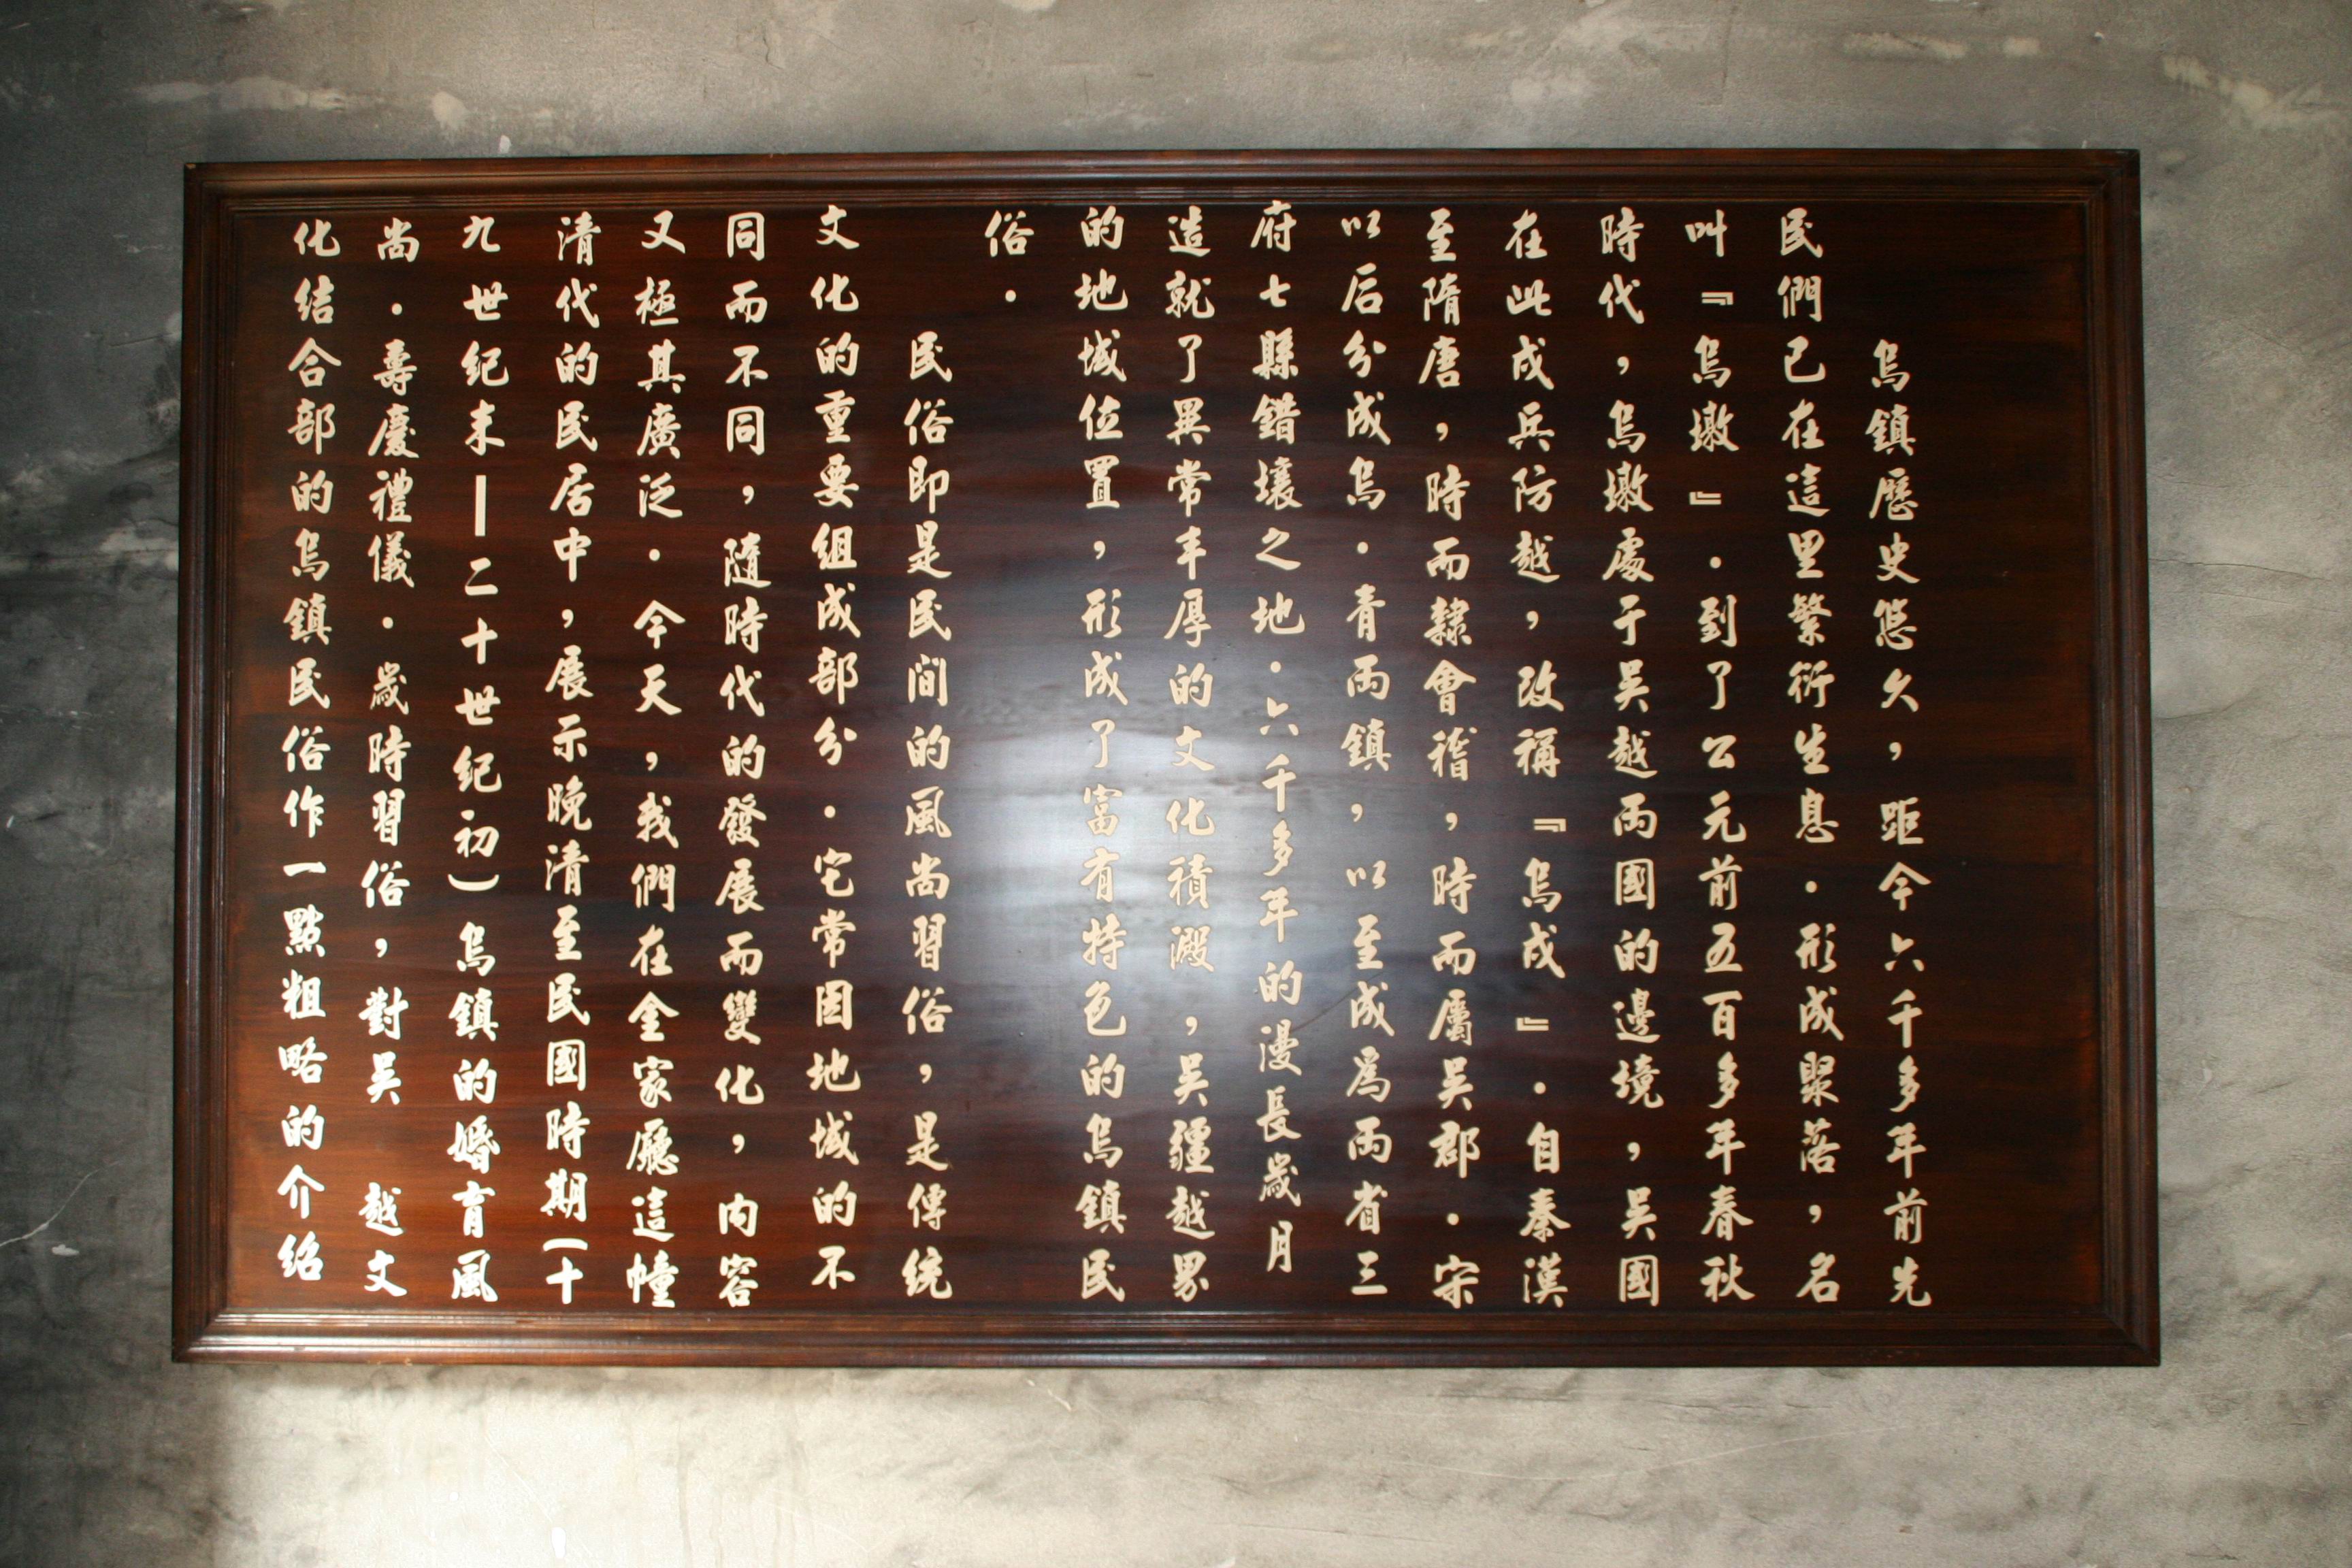 烏鎮歷史悠久，距今六千多年前先
民們已在這里繁衍生息．形成聚落，名
叫『烏墩』．到了公元前五百多年春秋
時代，烏墩處于吴越兩國的邊境，吴國
在此戍兵防越，改稱『烏戍』．自秦漢
至隋唐，時而隸會稽，時而屬吴郡．宋
以后分成烏．青兩鎮，以至成為兩省三
府七縣錯壤之地．六千多年的漫長歲月
造就了異常丰厚的文化積澱，吴疆越界
的地域位置，形成了富有特色的烏鎮民
俗．
民俗即是民间的風尚習俗，是傳统
文化的重要组成部分．它常因地域的不
同而不同，隨時代的發展而變化，内容
又極其廣泛．今天，我們在金家廳這幢
清代的民居中，展示晚清至民國時期（十
九世纪末—二十世纪初）烏鎮的婚育風
尚．壽慶禮儀．歲時習俗，對吴越文
化结合部的烏鎮民俗作一點粗略的介绍